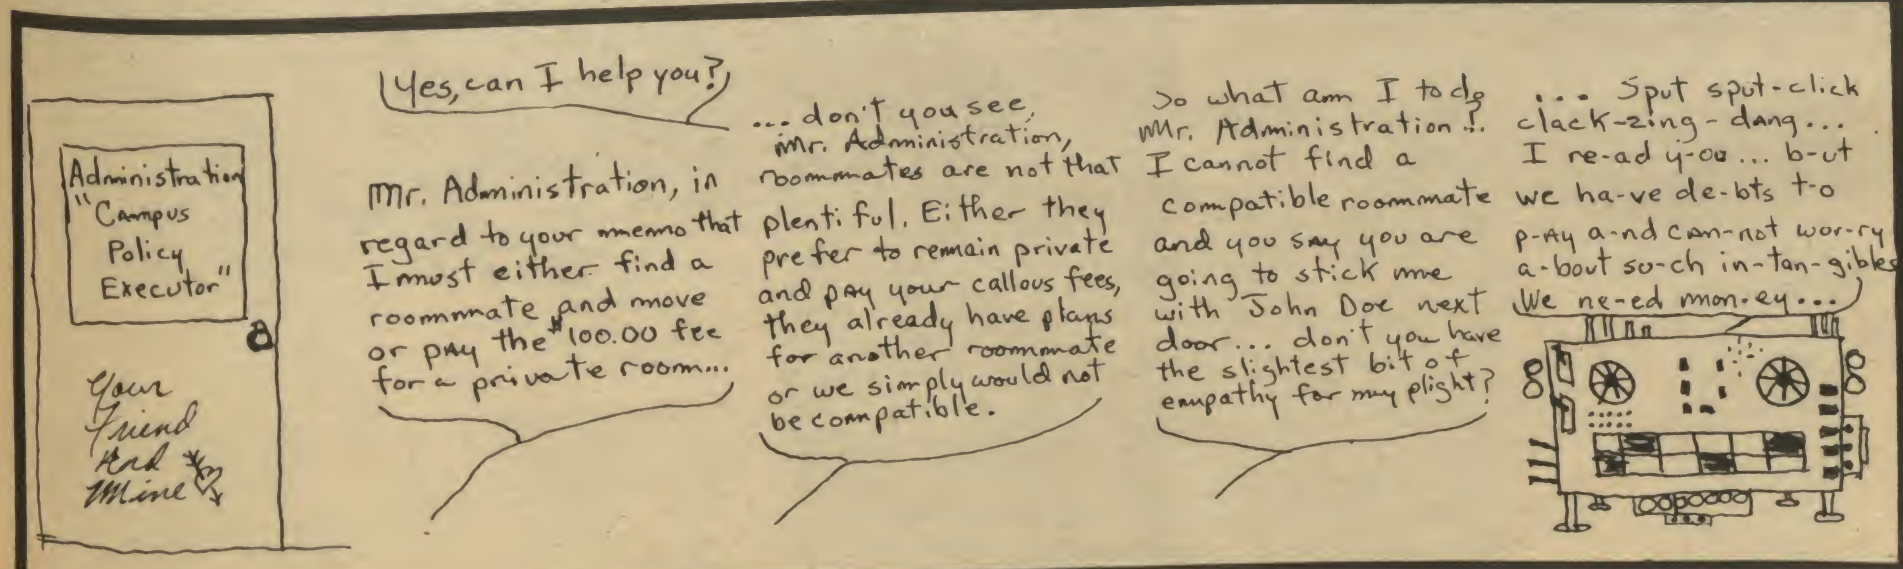 Administration
"Campus
Policy
Executor"
Your
Friend
And
Mine
Yes, can I help you?
Mr. Administration, in
regard to your memo that
I must either find a
roommate and move
or pay the $100.00 fee
for a private room...
... don't you see,
Mr. Administration,
roommates are not that
plentiful. Either they
prefer to remain private
and pay your callous fees,
they already have plans
for another roommate
or we simply would not
be compatible.
So what am I to do
Mr. Administration?
I cannot find a
compatible roommate
and you say you are
going to stick me
with John Doe next
door... don't you have
the slightest bit of
empathy for my plight?
... Sput sput-click
clack-zing-dang...
I re-ad y-ou... b-ut
we ha-ve de-bts t-o
p-ay a-nd can-not wor-ry
a-bout su-ch in-tan-gibles
We ne-ed mon-ey...